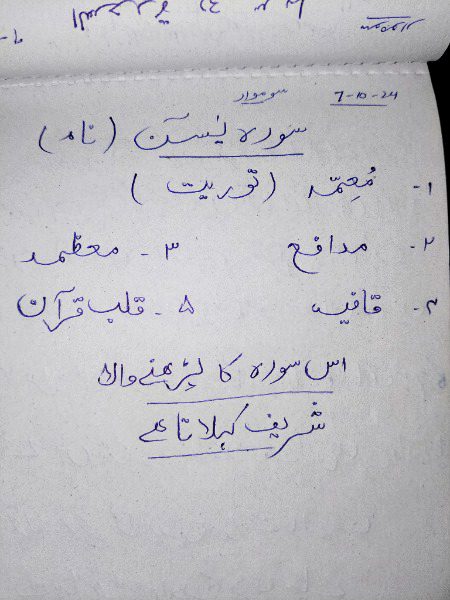 سوموار 7-10-24
سورہ یٰسٓن (نام)
۱- مُعِمّہ (توریت)
۲- مدافع ۳- معظمہ
۴- قافیہ ۵- قلب قرآن
اس سورہ کا پڑھنے والا
شریف کہلاتا ہے